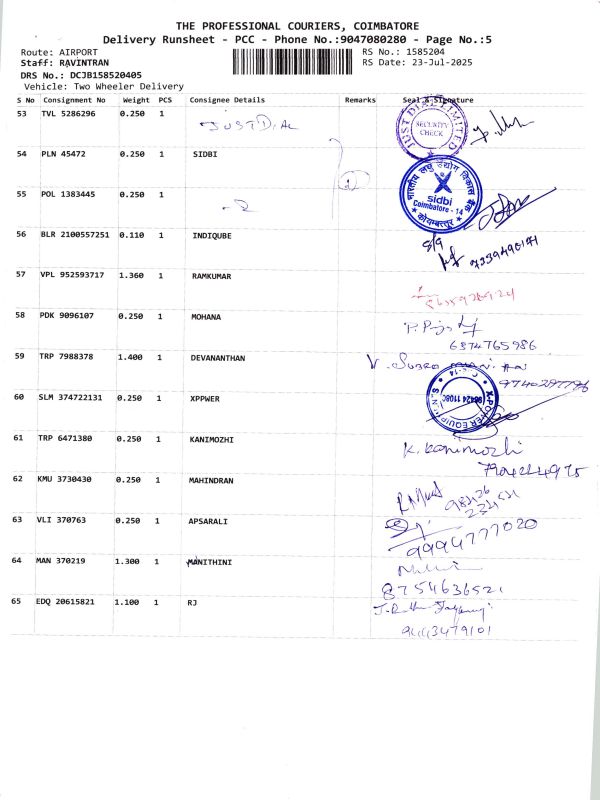 THE PROFESSIONAL COURIERS, COIMBATORE
Delivery Runsheet - PCC - Phone No.:9047080280 - Page No.:5
Route: AIRPORT RS No.: 1585204
Staff: RAVINTRAN RS Date: 23-Jul-2025
DRS No.: DCJB158520405
Vehicle: Two Wheeler Delivery
S No Consignment No Weight PCS Consignee Details Remarks Seal & Signature
53 TVL 5286296 0.250 1 JUST DIAL
JUST DIAL LIMITED
SECURITY CHECK
54 PLN 45472 0.250 1 SIDBI
भारतीय लघु उद्योग विकास बैंक
sidbi
Coimbatore - 14
कोयम्बत्तूर
55 POL 1383445 0.250 1
56 BLR 2100557251 0.110 1 INDIQUBE
57 VPL 952593717 1.360 1 RAMKUMAR
58 PDK 9096107 0.250 1 MOHANA
6374765986
59 TRP 7988378 1.400 1 DEVANANTHAN
60 SLM 374722131 0.250 1 XPPWER
61 TRP 6471380 0.250 1 KANIMOZHI
K. Kanimozhi
62 KMU 3730430 0.250 1 MAHINDRAN
63 VLI 370763 0.250 1 APSARALI
9994777020
64 MAN 370219 1.300 1 MANITHINI
8754636521
65 EDQ 20615821 1.100 1 RJ
9443479101